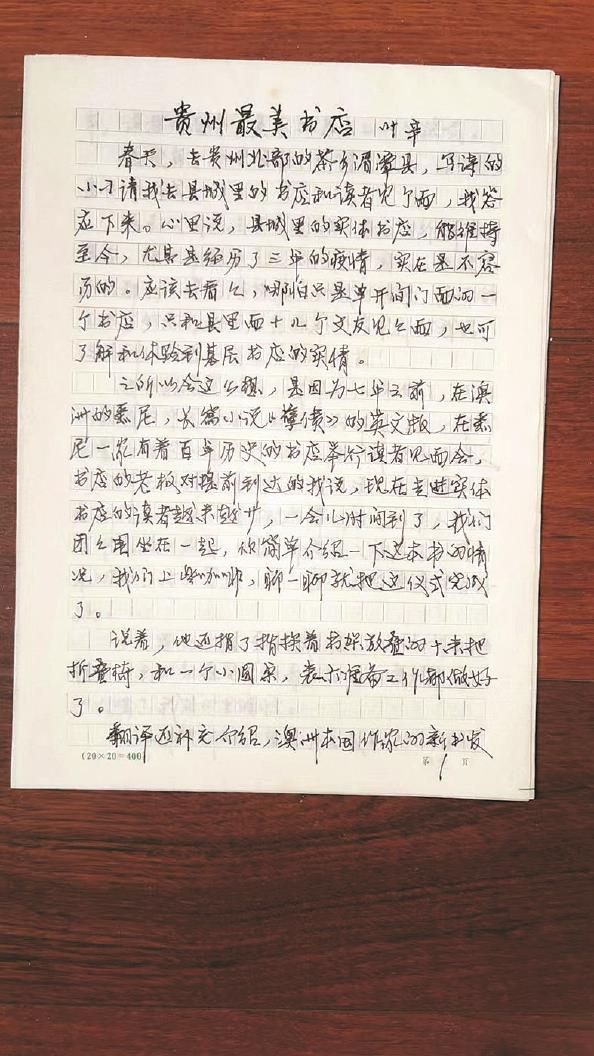 贵州最美书店 叶辛
春天，去贵州北部的茶乡湄潭县，写诗的
小刁请我去县城里的书店和读者见个面，我答
应下来。心里说，县城里的实体书店，能维持
至今，尤其是经历了三年的疫情，实在是不容
易的。应该去看之，哪怕只是单开间门面的一
个书店，只和县里面十几个文友见之面，也可
了解和体验到基层书店的实情。
之所以会这么想，是因为七年之前，在澳
洲的悉尼，长篇小说《孽债》的英文版，在悉
尼一家有着百年历史的书店举行读者见面会，
书店的老板对提前到达的我说，现在走进实体
书店的读者越来越少，一会儿时间到了，我们
团之围坐在一起，你简单介绍一下这本书的情
况，我们上咖啡，聊一聊就把这仪式完成
了。
说着，他还指了指挨着书架放叠的十来把
折叠椅，和一个小圆桌，表示准备工作都做好
了。
翻译还补充介绍，澳洲本国作家的新书发
(20×20=400) 第 1 页